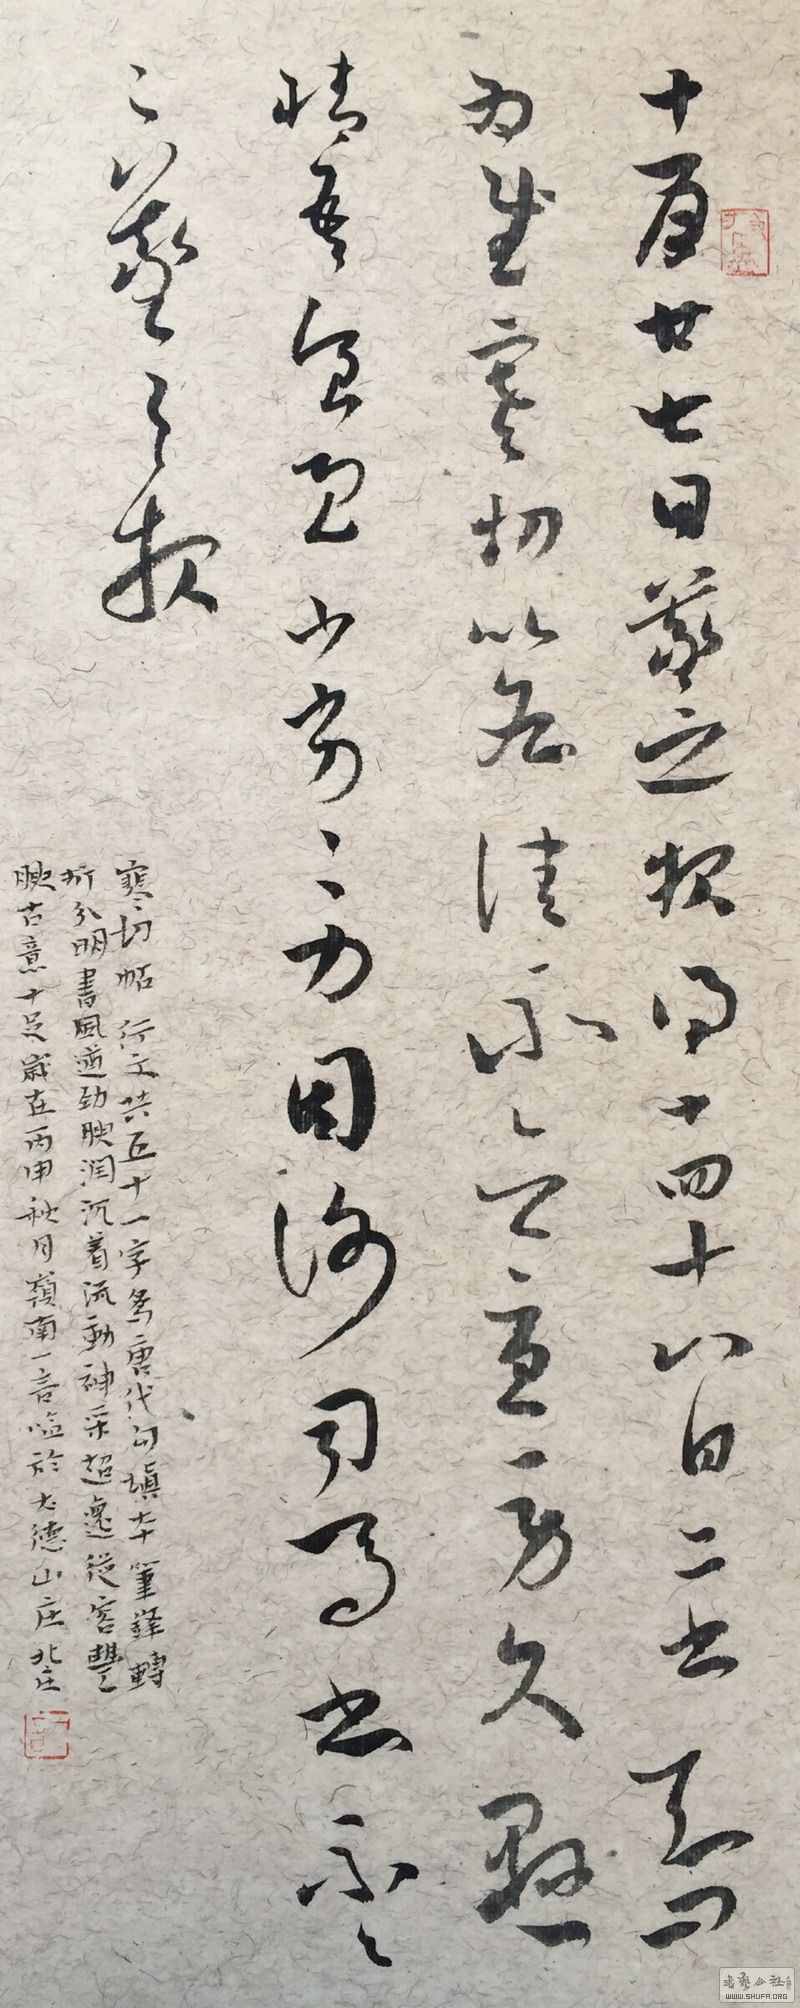 十一月廿七日羲之報得十四十八日二書知問
為慰寒切比各佳不念憂勞久懸
情吾食至少劣劣力因謝司馬書不具
不具羲之報
寒切帖 行文共五十一字為唐代勾填本筆鋒轉
折分明書風遒勁腴潤沉着流動神采超逸從容豐
腴古意十足歲在丙申秋月嶺南一言臨於大德山庄北庄
書藝公社
WWW.SHUFA.ORG